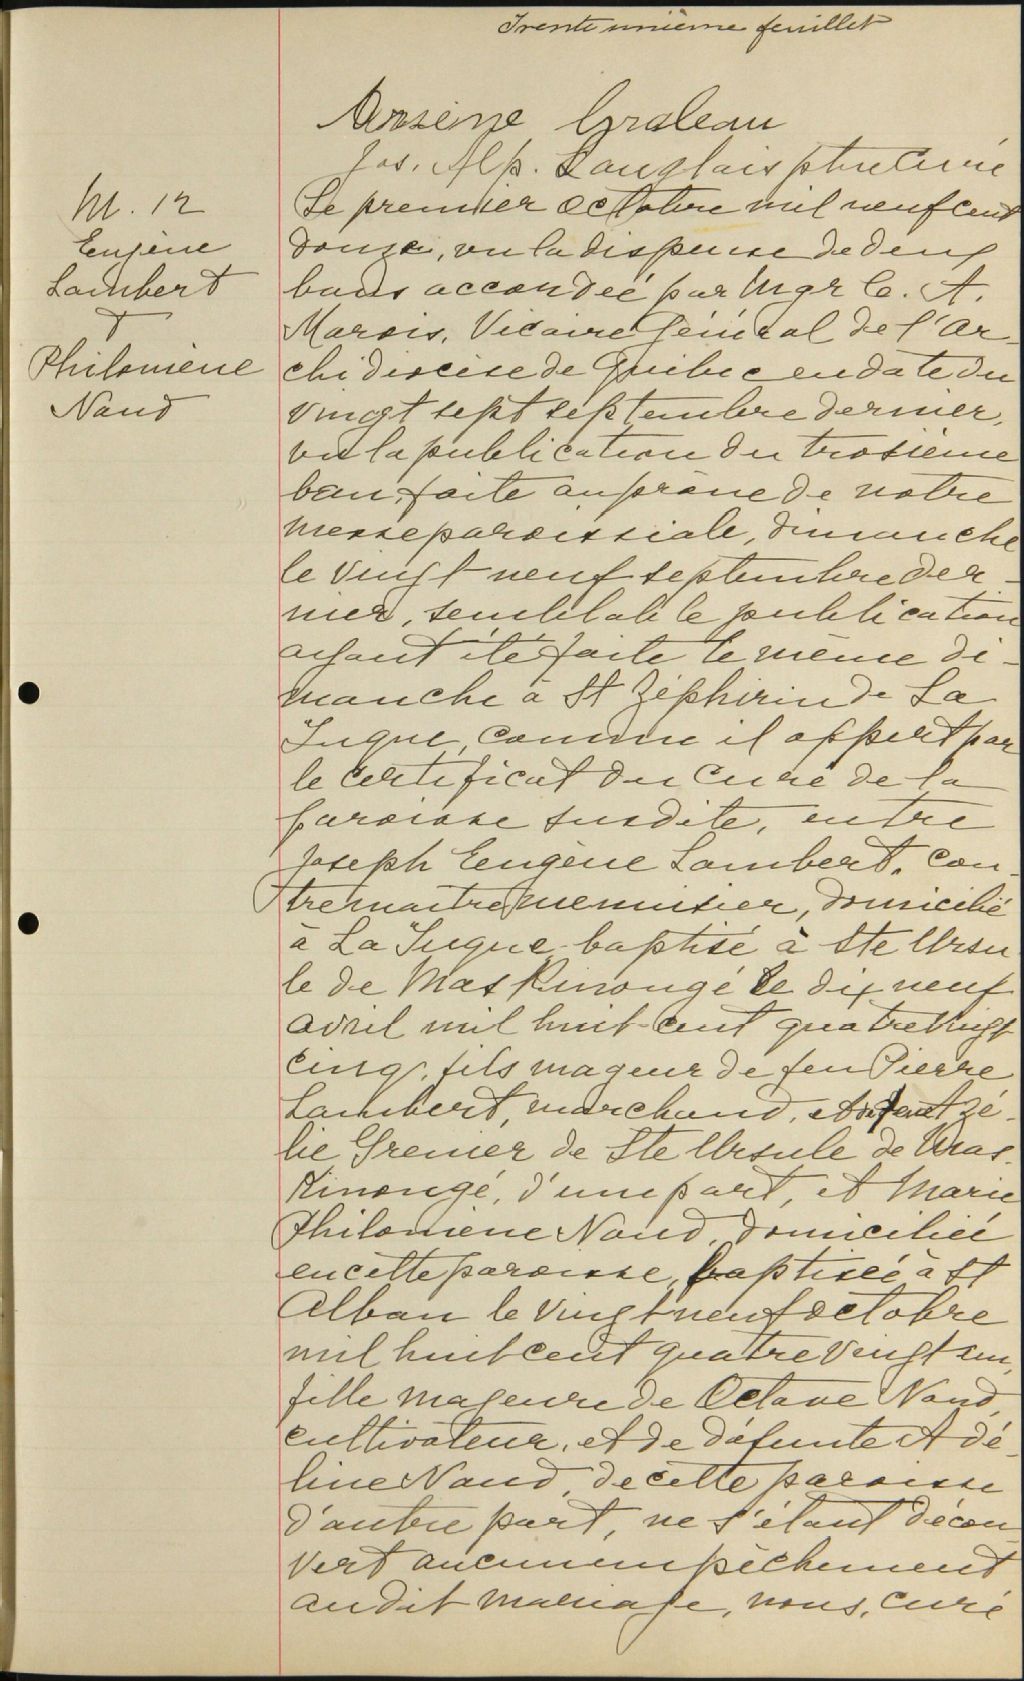 Trente unième feuillet
Arsène Groleau
Jos. Alp. Langlais ptre Curé
M. 12
Eugène
Lambert
&
Philomène
Naud
Le premier octobre mil neuf cent
douze, vu la dispense de deux
bans accordée par Mgr C. A.
Marois, Vicaire Général de l'Ar-
chidiocèse de Québec en date du
vingt sept septembre dernier,
vu la publication du trosième
ban, faite au prône de notre
messe paroissiale, dimanche
le vingt neuf septembre der-
nier, semblable publication
ayant été faite le même di-
manche à St Zéphirin de La
Tuque, comme il appert par
le certificat du Curé de la
paroisse susdite, entre
Joseph Eugène Lambert, con-
tremaître menuisier, domicilié
à La Tuque baptisé à Ste Ursu
le de Maskinongé le dix neuf
avril mil huit-cent quatre vingt
cinq, fils mageur de feu Pierre
Lambert, marchand, et de Azé-
lie Grenier de Ste Ursule de Mas-
kinongé, d'une part, et Marie
Philomène Naud, domiciliée
en cette paroisse, baptisée à St
Alban le vingt neuf octobre
mil huit cent quatre vingt un,
fille mageure de Octave Naud,
cultivateur, et de défunte Adé-
line Naud, de cette paroisse
d'autre part, ne s'étant décou-
vert aucun empêchement
au dit mariage, nous, curé